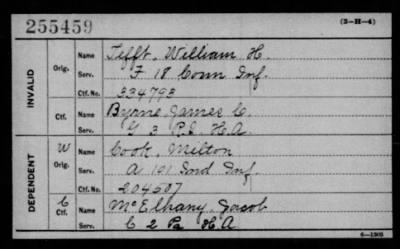 255459 (3-H-4)
INVALID
Orig. Name Tefft, William H.
Serv. F 18 Conn Inf.
Ctf. No. 334793
Ctf. Name Byrne James C.
Serv. G 3 R.I. H.A.
DEPENDENT
W Orig. Name Cook, Milton
Serv. A 101 Ind Inf.
Ctf. No. 204507
C Ctf. Name McElhany, Jacob
Serv. C 2 Pa H A
6-1303